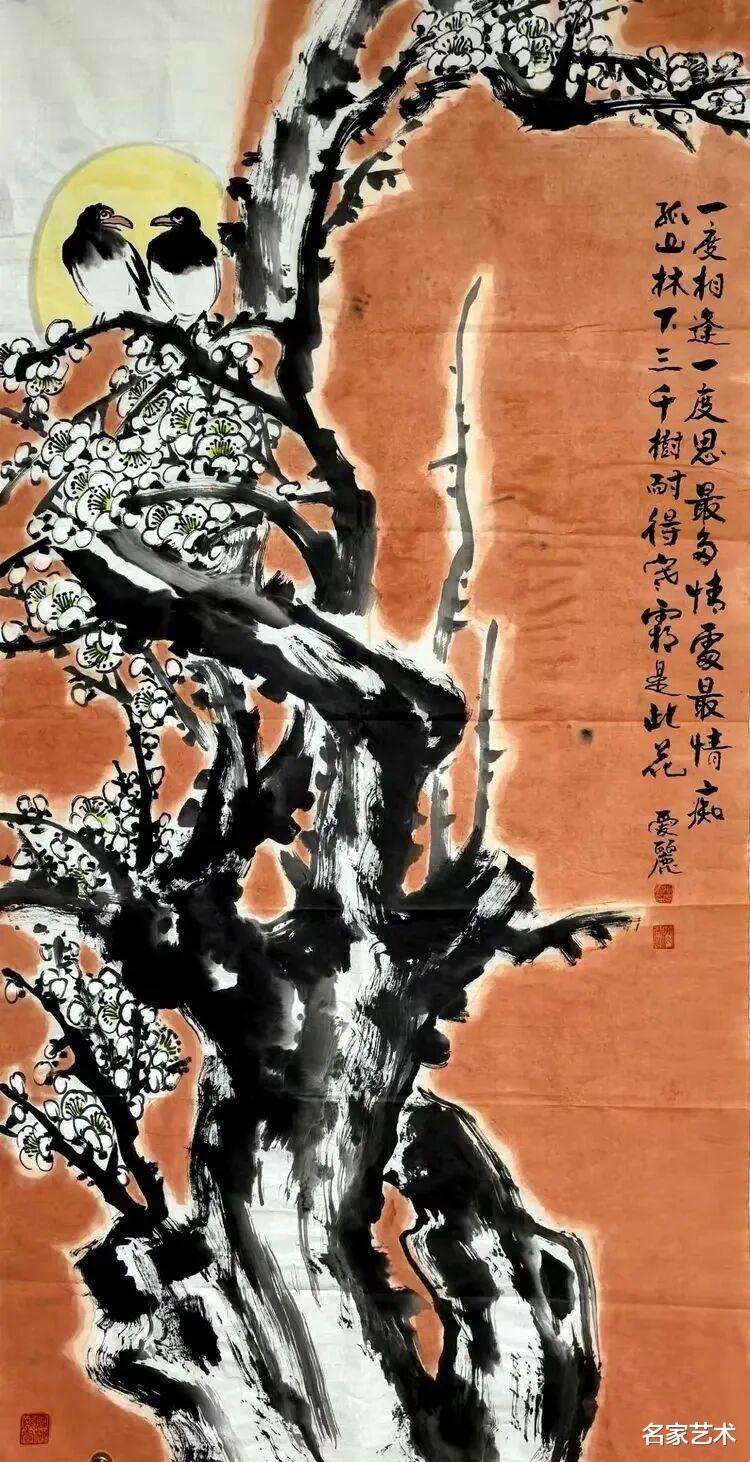 一度相逢一度思最多情處最情痴
孤山林下三千樹耐得寒霜是此花
爱麗
名家艺术